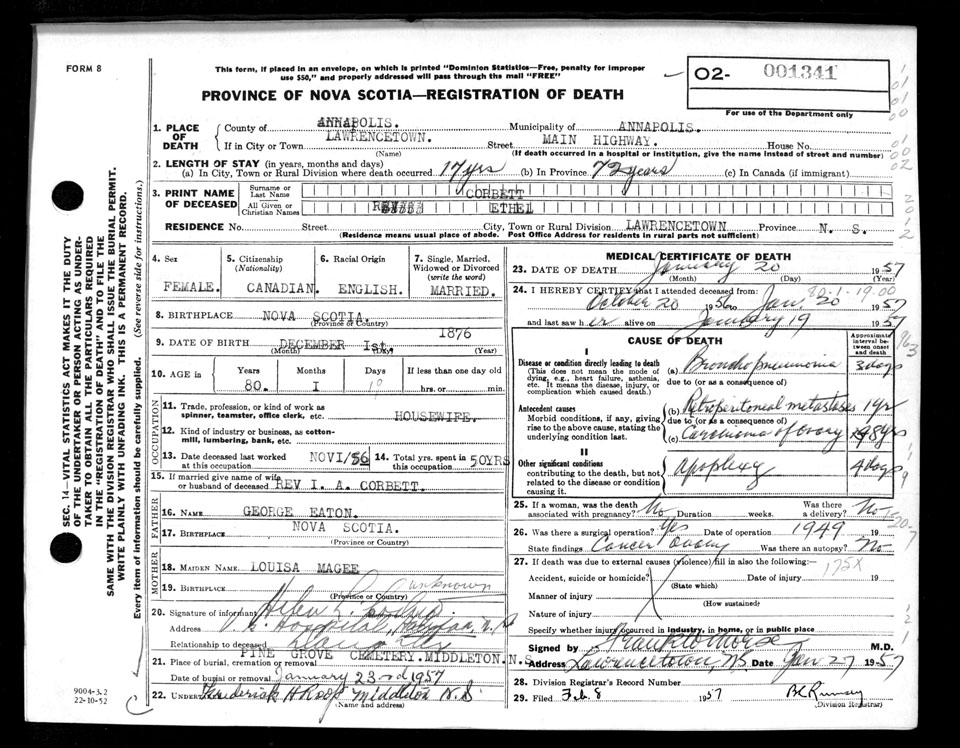 FORM 8
This form, if placed in an envelope, on which is printed "Dominion Statistics—Free, penalty for improper
use $50," and properly addressed will pass through the mail "FREE"
02- 001341
For use of the Department only
PROVINCE OF NOVA SCOTIA—REGISTRATION OF DEATH
1. PLACE OF DEATH
County of ANNAPOLIS. Municipality of ANNAPOLIS.
If in City or Town LAWRENCETOWN. Street MAIN HIGHWAY. House No.
(Name) (If death occurred in a hospital or institution, give the name instead of street and number)
2. LENGTH OF STAY (in years, months and days)
(a) In City, Town or Rural Division where death occurred 17 yrs (b) In Province 72 years (c) In Canada (if immigrant)
3. PRINT NAME OF DECEASED
Surname or Last Name CORBETT
All Given or Christian Names ETHEL
RESIDENCE No. Street City, Town or Rural Division LAWRENCETOWN Province N. S.
(Residence means usual place of abode. Post Office Address for residents in rural parts not sufficient)
4. Sex FEMALE.
5. Citizenship (Nationality) CANADIAN.
6. Racial Origin ENGLISH.
7. Single, Married, Widowed or Divorced (write the word) MARRIED.
8. BIRTHPLACE NOVA SCOTIA.
(Province or Country)
9. DATE OF BIRTH DECEMBER Ist. 1876
(Month) (Day) (Year)
10. AGE in Years Months Days If less than one day old
80. I 19 hrs. or min.
OCCUPATION
11. Trade, profession, or kind of work as spinner, teamster, office clerk, etc. HOUSEWIFE.
12. Kind of industry or business, as cotton-mill, lumbering, bank, etc.
13. Date deceased last worked at this occupation NOVI/56 14. Total yrs. spent in this occupation 50YRS
15. If married give name of wife or husband of deceased REV I. A. CORBETT.
FATHER
16. NAME GEORGE EATON.
17. BIRTHPLACE NOVA SCOTIA
(Province or Country)
MOTHER
18. MAIDEN NAME LOUISA MAGEE
19. BIRTHPLACE unknown
(Province or Country)
20. Signature of informant Helen
Address Hospital, Halifax N.S
Relationship to deceased
21. Place of burial, cremation or removal PINE GROVE CEMETERY. MIDDLETON. N.S.
Date of burial or removal January 23rd 1957
22. UNDERTAKER Frederick A Roop Middleton N.S.
(Name and address)
MEDICAL CERTIFICATE OF DEATH
23. DATE OF DEATH January 20 1957
(Month) (Day) (Year)
24. I HEREBY CERTIFY that I attended deceased from: 20-1-1900
October 20 1956 to Jan. 20 1957
and last saw her alive on January 19 1957
CAUSE OF DEATH
Approximate interval between onset and death
I
Disease or condition directly leading to death
(This does not mean the mode of dying, e.g., heart failure, asthenia, etc. It means the disease, injury, or complication which caused death.)
(a) Bronchopneumonia 3 days
due to (or as a consequence of)
Antecedent causes
Morbid conditions, if any, giving rise to the above cause, stating the underlying condition last.
(b) Retroperitoneal metastases 1 yr
due to (or as a consequence of)
(c) Carcinoma of ovary 8 yrs
II
Other significant conditions
contributing to the death, but not related to the disease or condition causing it.
Apoplexy 4 days
25. If a woman, was the death associated with pregnancy? No Duration weeks. Was there a delivery? No
26. Was there a surgical operation? Yes Date of operation 1949 19
State findings Cancer Ovary Was there an autopsy? No
27. If death was due to external causes (violence) fill in also the following:—
175X
Accident, suicide or homicide? Date of injury 19
(State which)
Manner of injury
(How sustained)
Nature of injury
Specify whether injury occurred in industry, in home, or in public place
Signed by Frank W Morse M.D.
Address Lawrencetown, NS Date Jan 27 1957
28. Division Registrar's Record Number
29. Filed Feb. 8 1957
(Division Registrar)
SEC. 14—VITAL STATISTICS ACT MAKES IT THE DUTY
OF THE UNDERTAKER OR PERSON ACTING AS UNDER-
TAKER TO OBTAIN ALL THE PARTICULARS REQUIRED
IN THE "REGISTRATION OF DEATH" AND TO FILE THE
SAME WITH THE DIVISION REGISTRAR WHO SHALL ISSUE THE BURIAL PERMIT.
WRITE PLAINLY WITH UNFADING INK. THIS IS A PERMANENT RECORD.
Every item of information should be carefully supplied. (See reverse side for instructions.)
9004-3.2
22-10-52